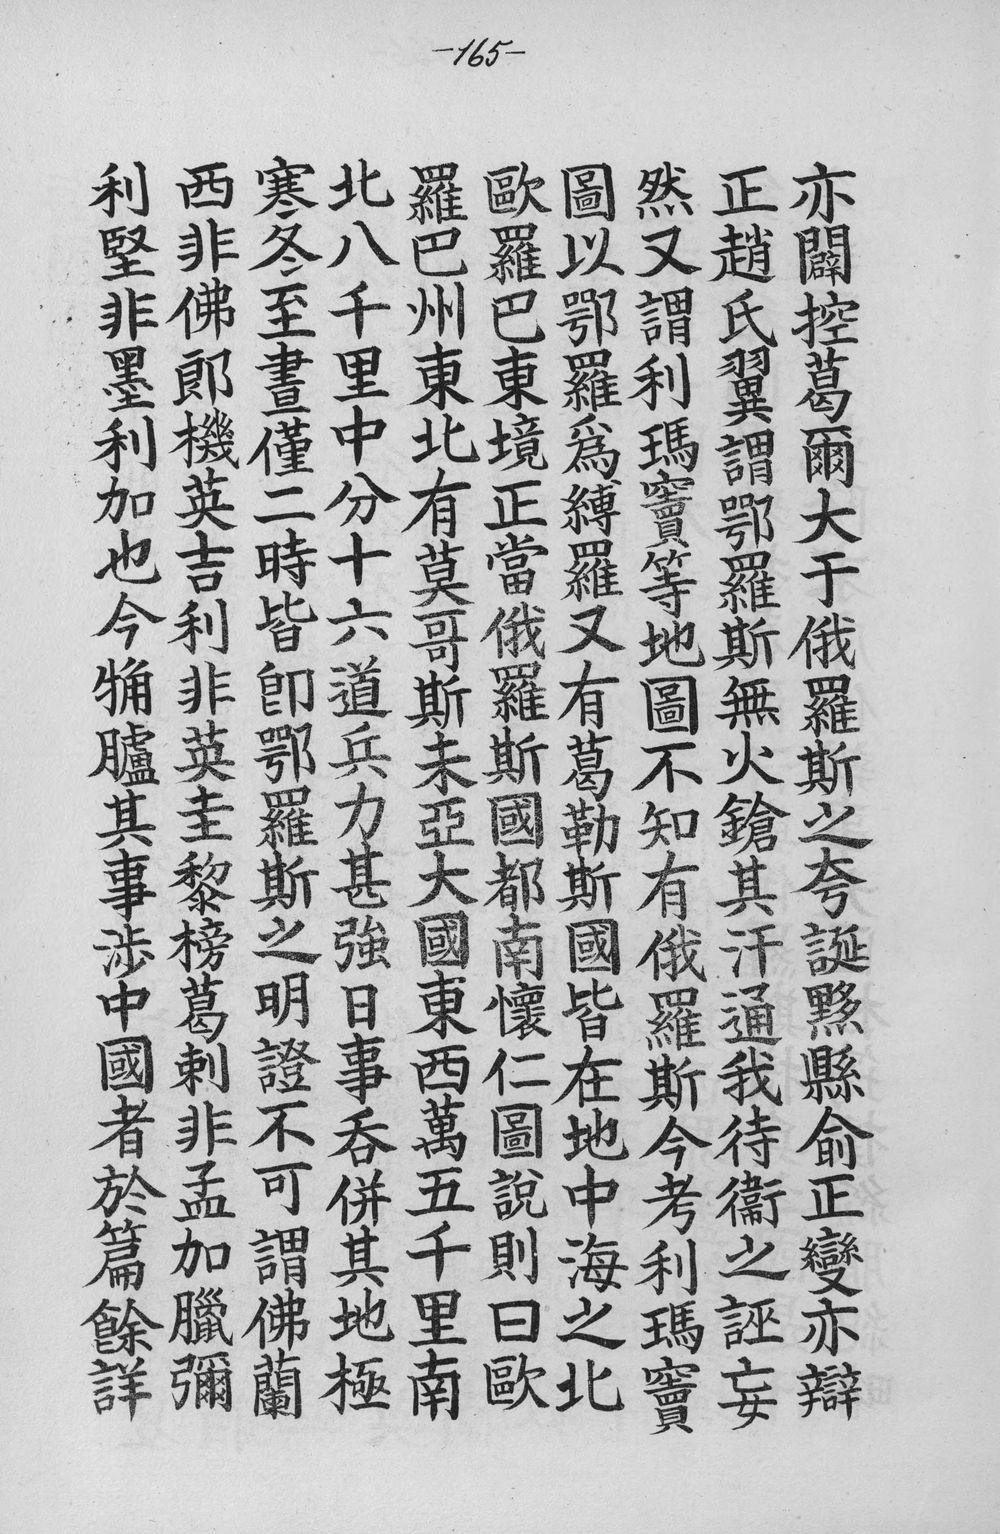 -165-
亦闢控葛爾大于俄羅斯之夸誕黟縣俞正變亦辯
正趙氏翼謂鄂羅斯無火鎗其汗通我待衞之誣妄
然又謂利瑪竇等地圖不知有俄羅斯今考利瑪竇
圖以鄂羅爲縛羅又有葛勒斯國皆在地中海之北
歐羅巴東境正當俄羅斯國都南懷仁圖說則曰歐
羅巴州東北有莫哥斯未亞大國東西萬五千里南
北八千里中分十六道兵力甚強日事吞併其地極
寒冬至晝僅二時皆卽鄂羅斯之明證不可謂佛蘭
西非佛郞機英吉利非英圭黎榜葛剌非孟加臘彌
利堅非墨利加也今觕臚其事涉中國者於篇餘詳